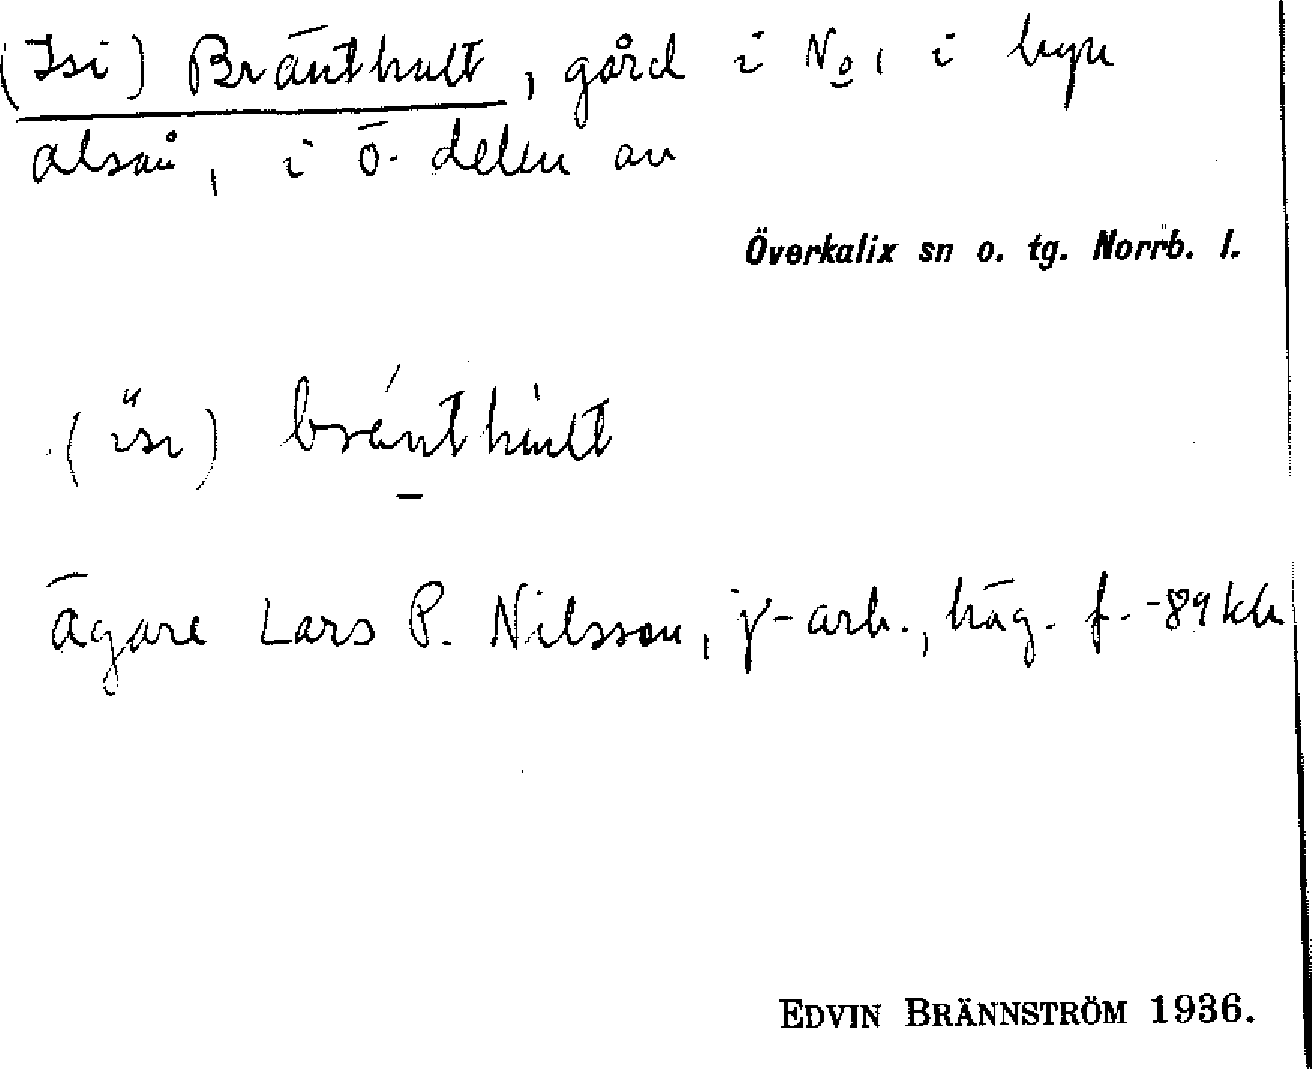 (Isi) Bränthult, gård i No 1 i byn
alsån, i ö. delen av
Överkalix sn o. tg. Norrb. l.
(ïsı) bränthult
ägare Lars P. Nilsson, j-arb., häg. f. -89 kh
EDVIN BRÄNNSTRÖM 1936.